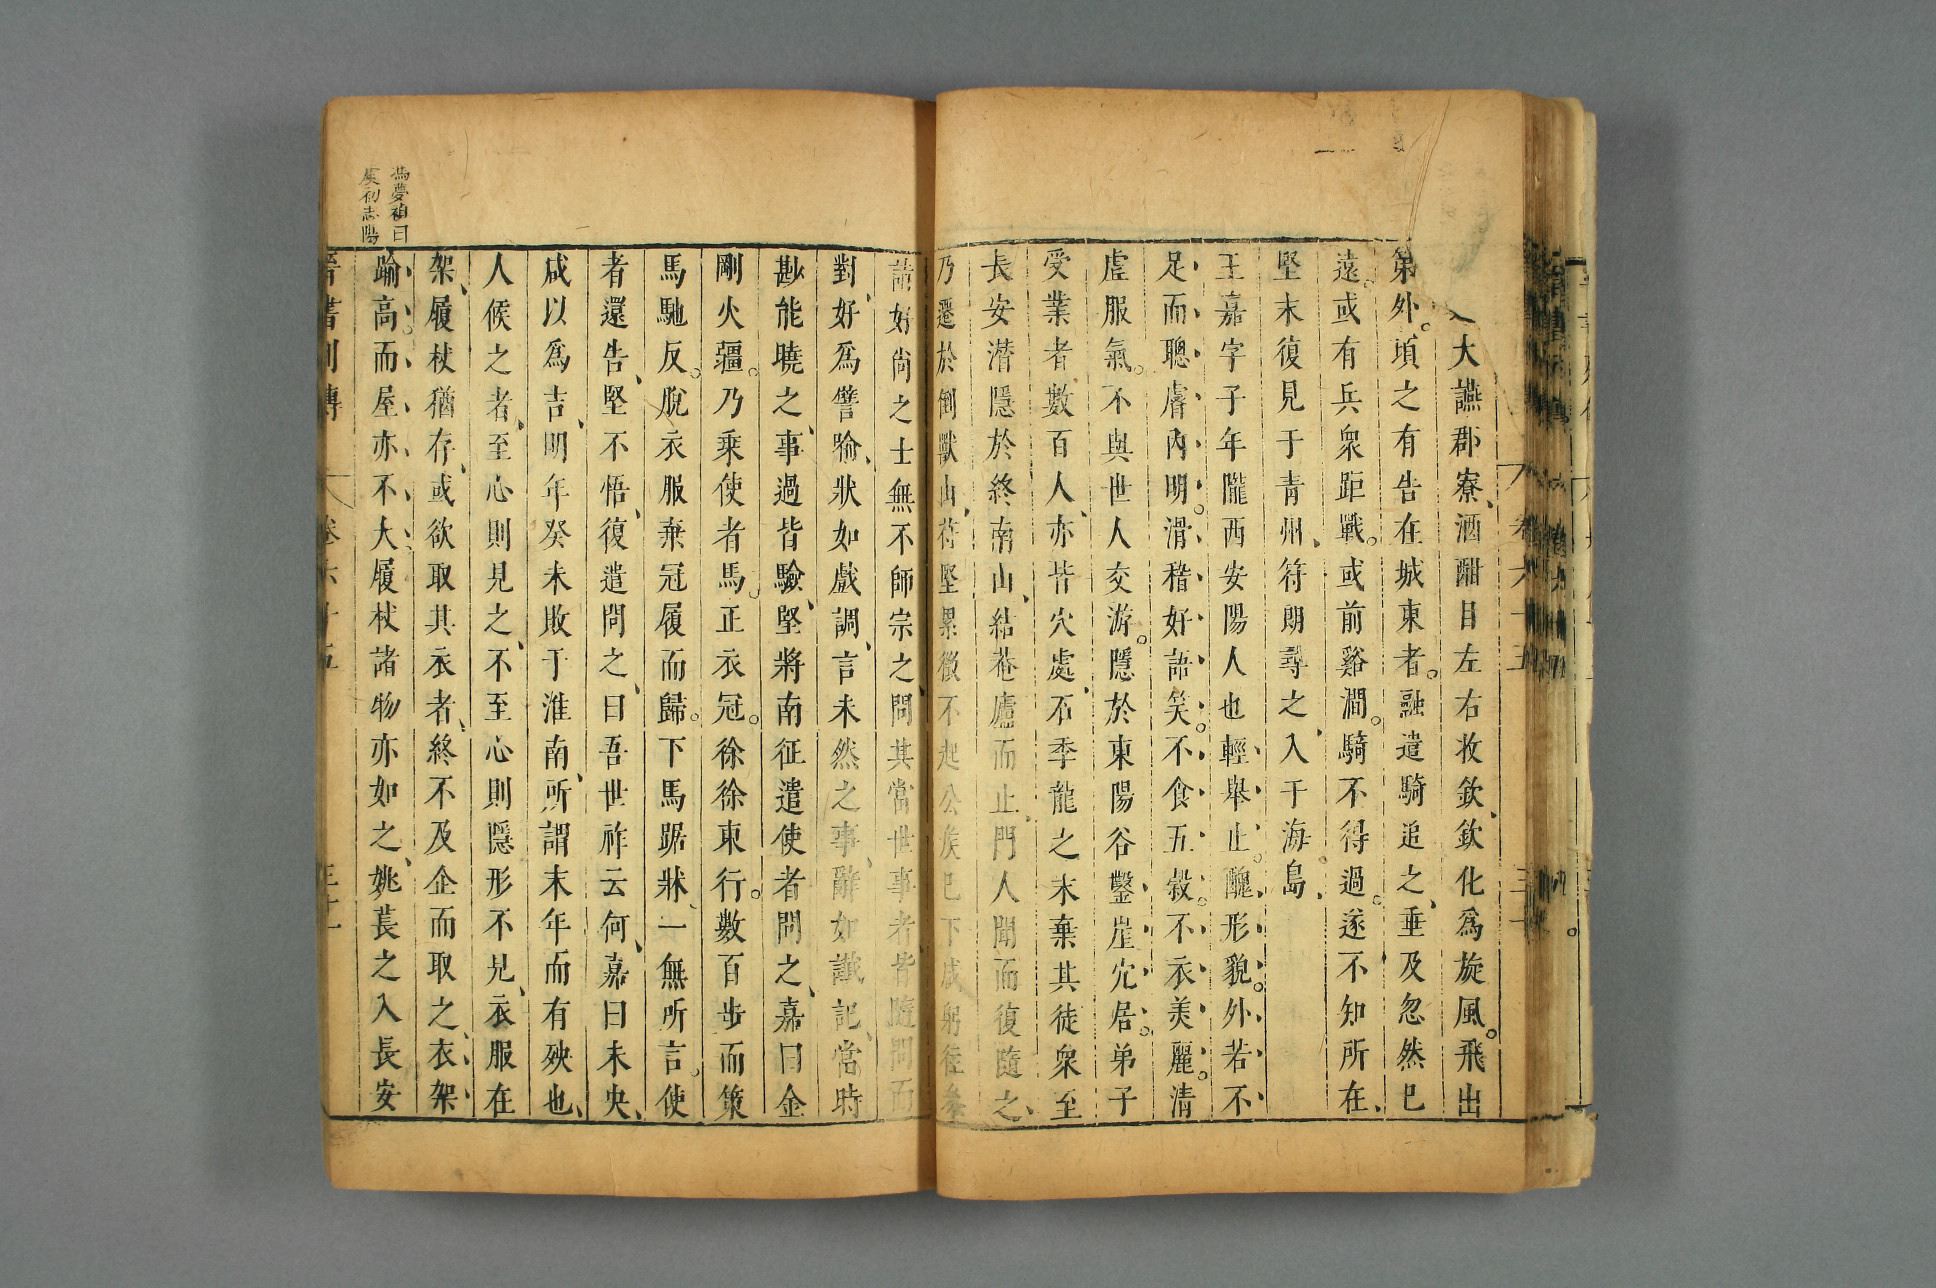 入大讌郡寮酒酣目左右收欽欽化爲旋風飛出
第外頃之有告在城東者融遣騎追之垂及忽然已
遠或有兵衆距戰或前谿澗騎不得過遂不知所在
堅末復見于青州符朗尋之入于海島
王嘉字子年隴西安陽人也輕舉止醜形貌外若不
足而聰睿內明滑稽好語笑不食五穀不衣美麗清
虛服氣不與世人交游隱於東陽谷鑿崖穴居弟子
受業者數百人亦皆穴處石季龍之末棄其徒衆至
長安潛隱於終南山結菴廬而止門人聞而復隨之
乃遷於倒獸山苻堅累徵不起公侯已下咸躬往參
詣好尚之士無不師宗之問其當世事者皆隨問而
對好爲譬喻狀如戲調言未然之事辭如讖記當時
尠能曉之事過皆驗堅將南征遣使者問之嘉曰金
剛火疆乃乘使者馬正衣冠徐徐東行數百步而策
馬馳反脫衣服棄冠履而歸下馬踞牀一無所言使
者還告堅不悟復遣問之曰吾世祚云何嘉曰未央
咸以爲吉明年癸未敗于淮南所謂末年而有殃也
人候之者至心則見之不至心則隱形不見衣服在
架履杖猶存或欲取其衣者終不及企而取之衣架
踰高而屋亦不大履杖諸物亦如之姚萇之入長安
馮夢禎曰
晉書列傳 卷六十五 三十一